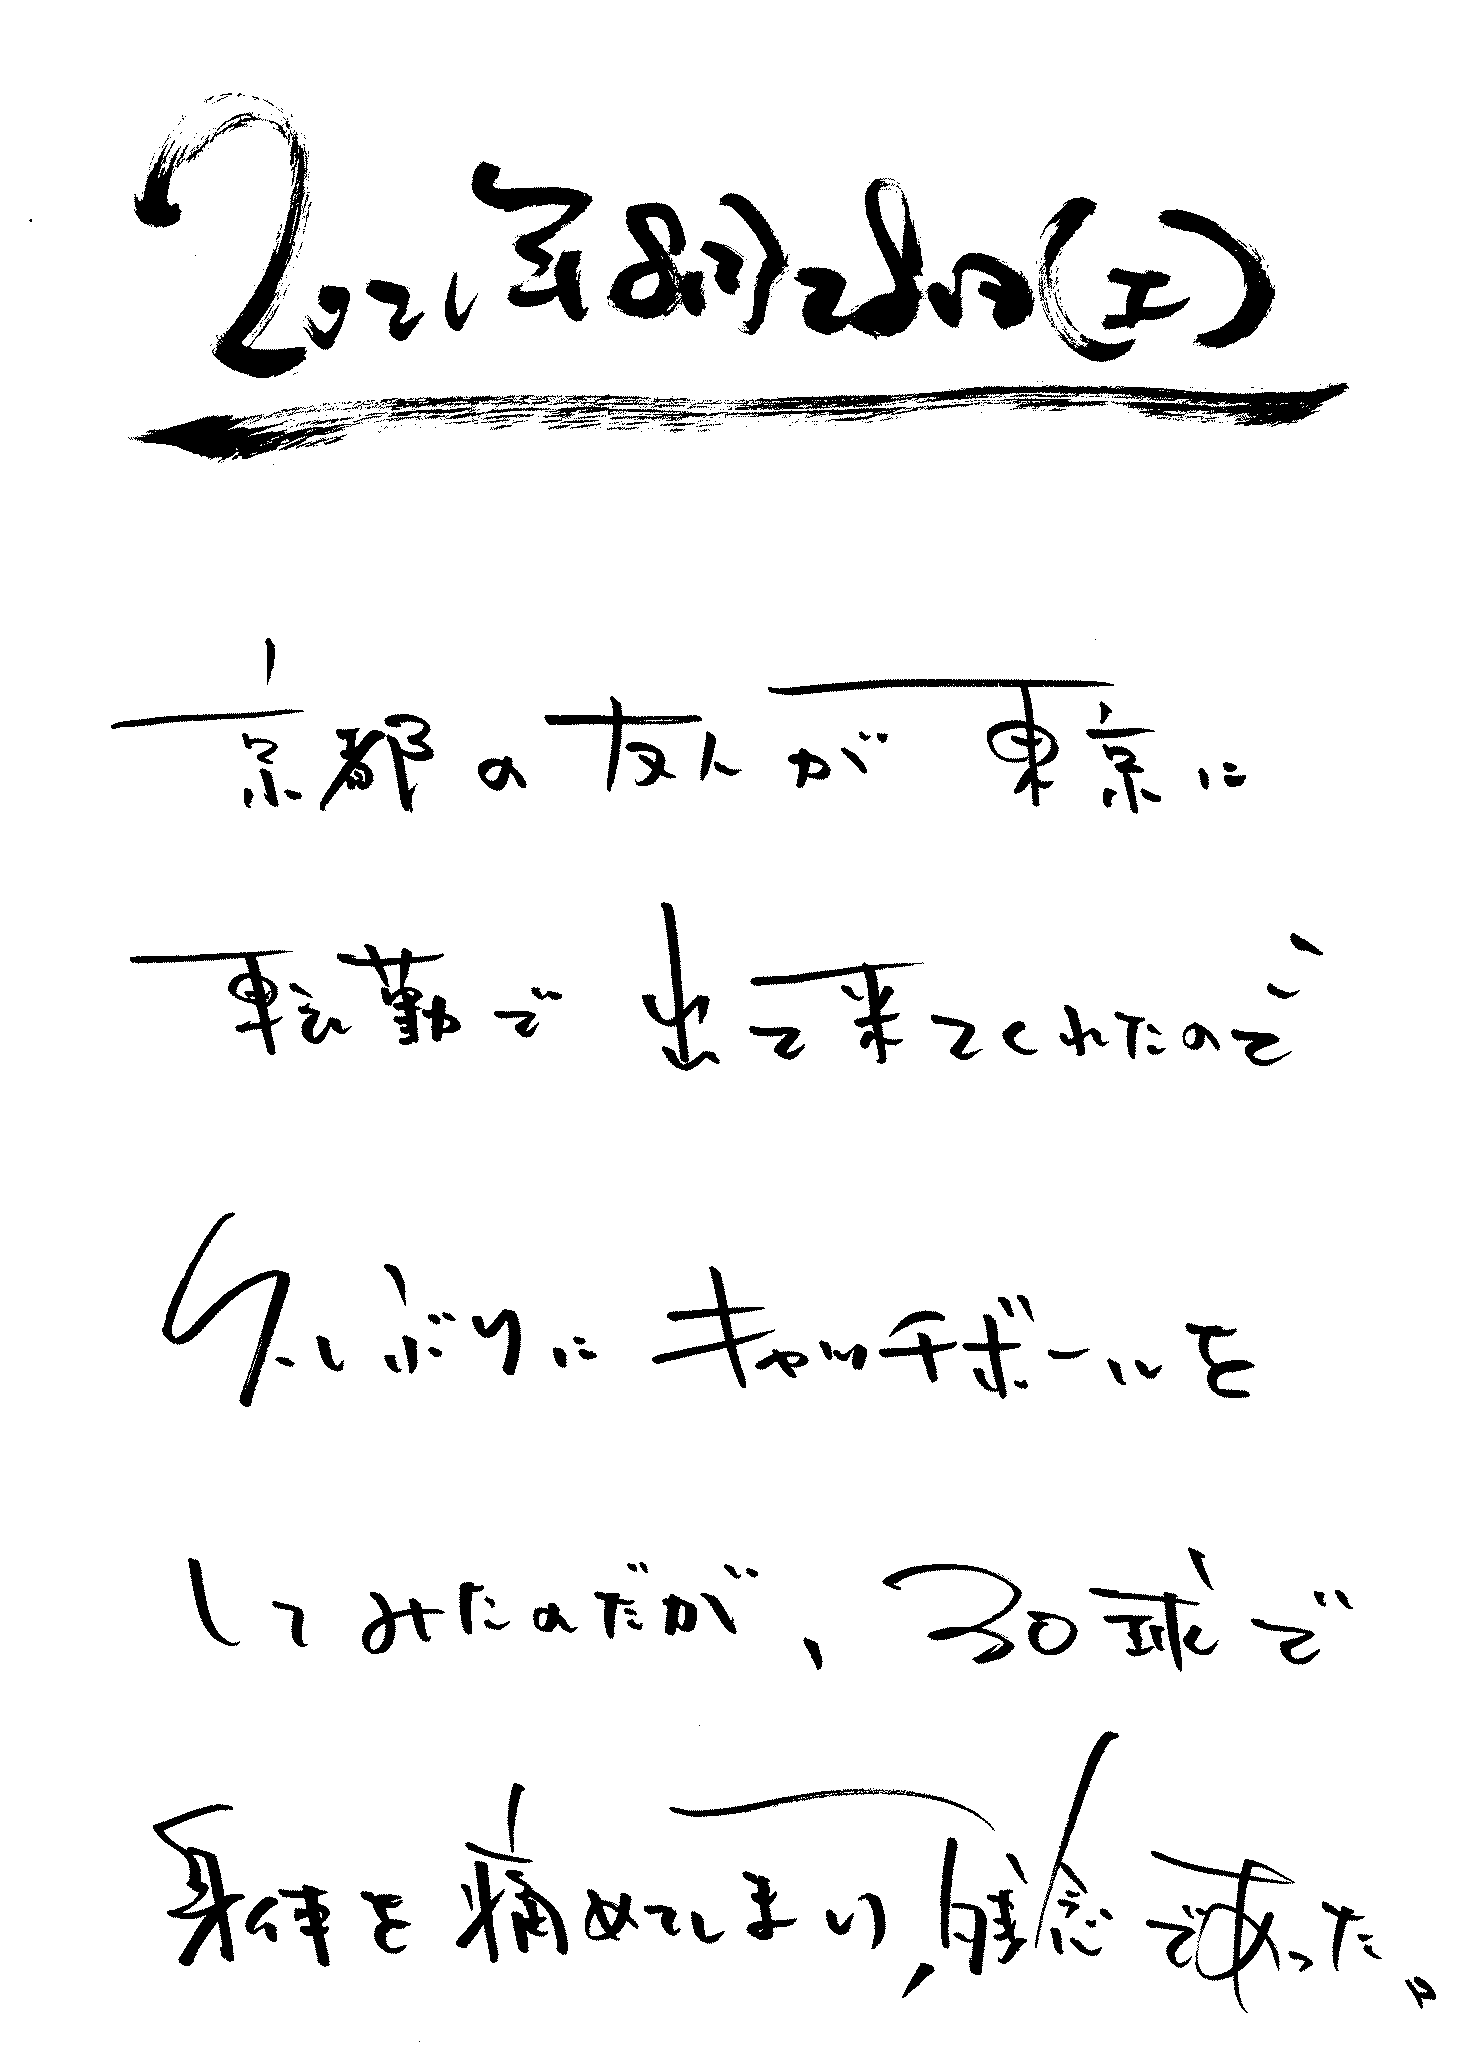 2021年8月28日(土)
京都の友人が東京に
転勤で出て来てくれたので
久しぶりにキャッチボールを
してみたのだが、30球で
身体を痛めてしまい、残念であった。